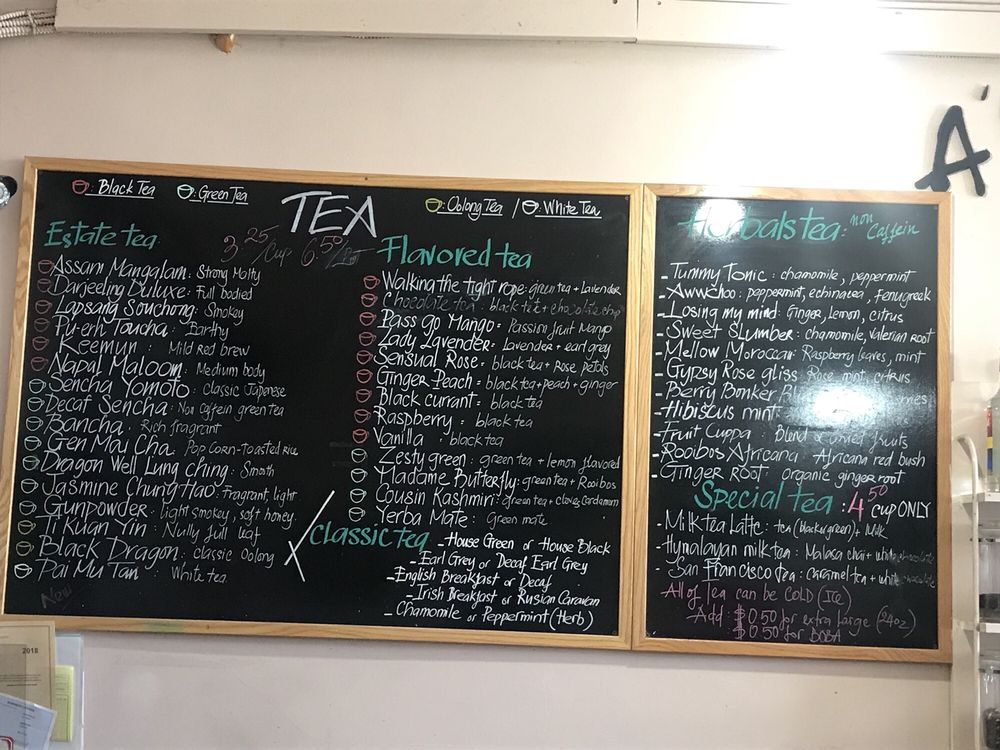 : Black Tea
: Green Tea
TEA
: Oolong Tea / : White Tea
Estate tea
3.25/cup 6.50/
Assam Mangalam : Strong Malty
Darjeeling Duluxe : Full bodied
Lapsang Souchong : Smokey
Pu-erh Toucha : Earthy
Keemun : Mild Red brew
Napal Maloom : Medium body
Sencha Yomoto : Classic Japanese
Decaf Sencha : Non Caffein green tea
Bancha : Rich fragrant
Gen Mai Cha : Pop Corn-Toasted Rice
Dragon Well Lung Ching : Smooth
Jasmine Chung Hao : Fragrant, light
Gunpowder : light smokey, soft honey
Ti Kuan Yin : Nully full leaf
Black Dragon : classic Oolong
Pai Mu Tan : White tea
New
Flavored tea
Walking the tight rope : green tea + Lavender
Chocolate tea : black tea + chocolate chip
Pass go Mango = Passion fruit Mango
Lady Lavender = Lavender + earl grey
Sensual Rose = black tea + Rose petals
Ginger Peach = black tea + peach + ginger
Black currant = black tea
Raspberry : black tea
Vanilla : black tea
Zesty green : green tea + lemon flavored
Madame Butterfly : green tea + Rooibos
Cousin Kashmiri : green tea + clove, cardamom
Yerba Mate : Green mate
Classic tea
- House Green or House Black
- Earl Grey or Decaf Earl Grey
- English Breakfast or Decaf
- Irish Breakfast or Rusian Caravan
- Chamomile or Peppermint (Herb)
Herbals tea : non Caffein
- Tummy Tonic : chamomile, peppermint
- Awwchoo : peppermint, echinacea, fenugreek
- Losing my mind : Ginger, Lemon, citrus
- Sweet Slumber : chamomile, Valerian root
- Mellow Moroccan : Raspberry leaves, mint
- Gypsy Rose gliss : Rose mint, citrus
- Berry Bonker
- Hibiscus mint
- Fruit Cuppa : Blend dried fruits
- Rooibos Africana : Africana red bush
- Ginger Root : Organic ginger root
Special tea : 4.50 cup ONLY
- Milk tea Latte : tea (black/green) + Milk
- Hymalayan milk tea : Malasa chai + white chocolate
- San Francisco tea : caramel tea + white chocolate
All of Tea can be COLD (ICE)
Add : $0.50 for extra Large (24oz)
$0.50 for BOBA
A
2018